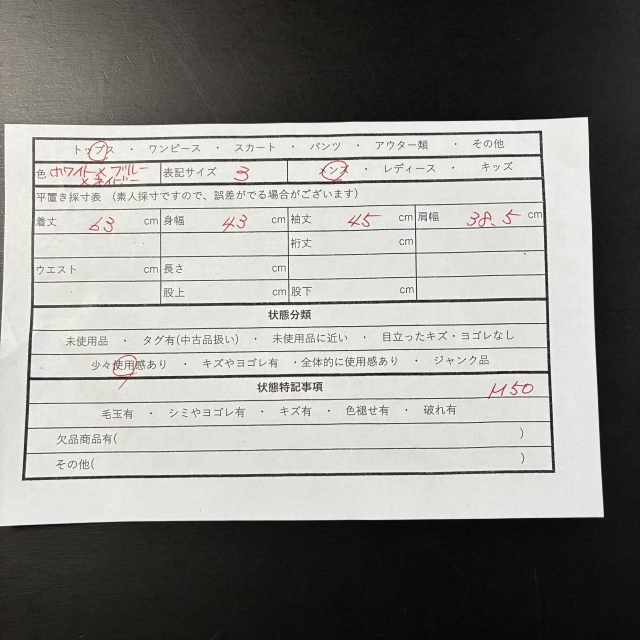 トップス ・ ワンピース ・ スカート ・ パンツ ・ アウター類 ・ その他
色 ホワイト×ブルー×ネイビー 表記サイズ 3 メンズ ・ レディース ・ キッズ
平置き採寸表 （素人採寸ですので、誤差がでる場合がございます）
着丈 63 cm 身幅 43 cm 袖丈 45 cm 肩幅 38.5 cm
裄丈 cm
ウエスト cm 長さ cm
股上 cm 股下 cm
状態分類
未使用品 ・ タグ有(中古品扱い) ・ 未使用品に近い ・ 目立ったキズ・ヨゴレなし
少々使用感あり ・ キズやヨゴレ有 ・全体的に使用感あり ・ ジャンク品
状態特記事項 M50
毛玉有 ・ シミやヨゴレ有 ・ キズ有 ・ 色褪せ有 ・ 破れ有
欠品商品有( )
その他( )